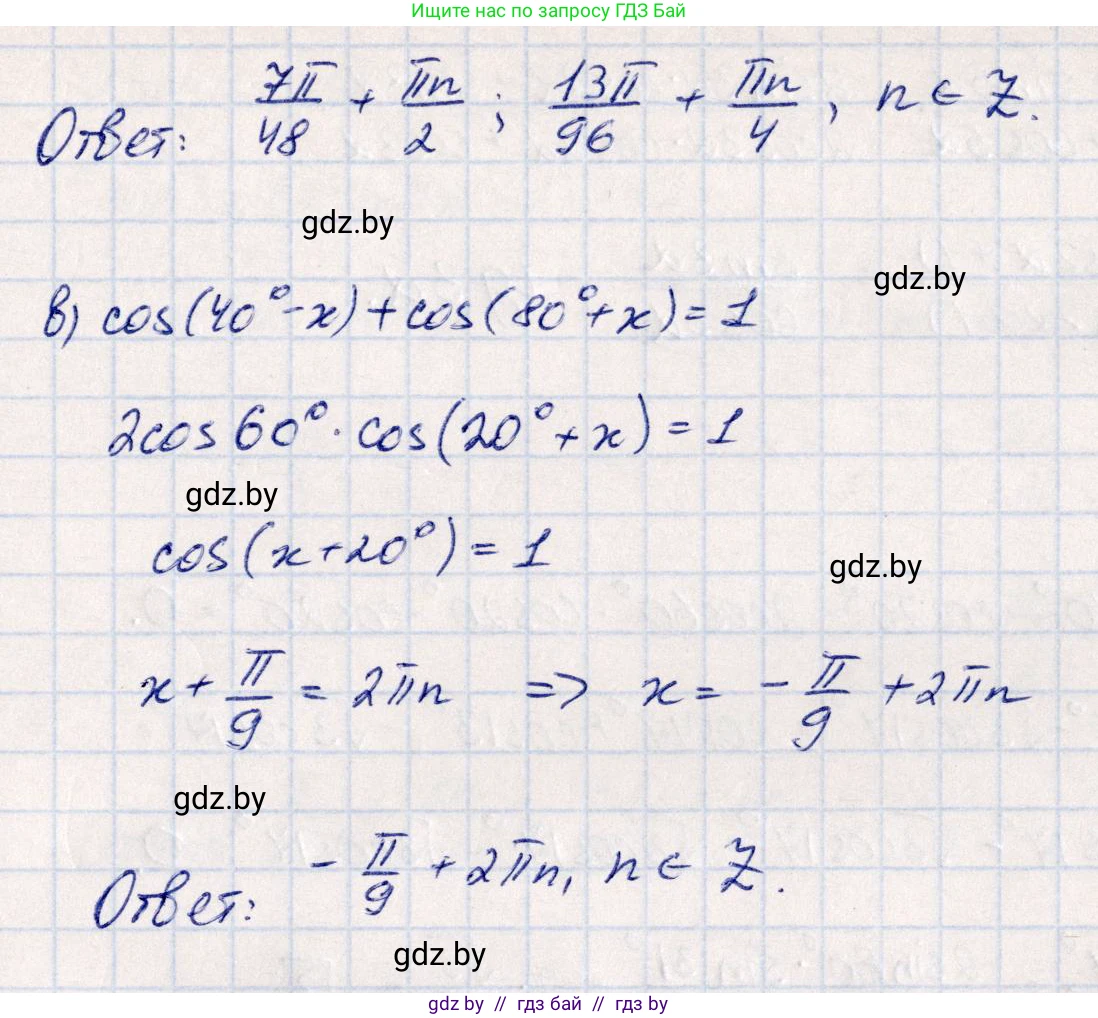 Ищите нас по запросу ГДЗ Бай
Ответ: 7π/48 + πn/2; 13π/96 + πn/4, n ∈ Z.
gdz.by
gdz.by
в) cos(40°-x)+cos(80°+x)=1
2cos60°·cos(20°+x)=1
gdz.by
cos(x+20°)=1
gdz.by
x+π/9=2πn => x=-π/9+2πn
gdz.by
Ответ: -π/9+2πn, n ∈ Z.
gdz.by
gdz by // гдз бай // гдз by